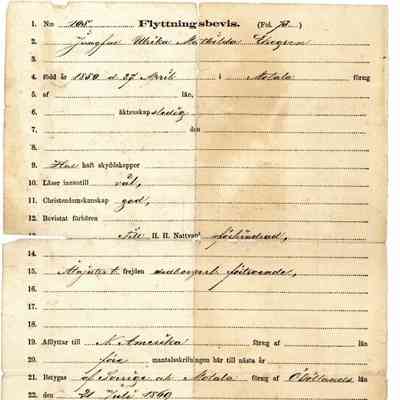 1. N:o 108. Flyttningsbevis. (Fol. 73.)
2. Jungfru Ulrika Mathilda
3.
4. född år 1850 d 27 April i Motala förs:g
5. af län,
6. äktenskap ledig
7. den
8.
9. Har haft skyddskoppor
10. Läser innantill väl,
11. Christendomskunskap god,
12. Bevistat förhören
13. Till H. H. Nattvard förhindrad,
14.
15. frejden medborgerl. förtroende,
16.
17.
18.
19. Afflyttar till N. Amerika förs:g af län
20. före mantalsskrifningen här till nästa år
21. Betygas af Sverige och Motala förs:g af Östgötlands län
22. den 21 Juli 1869